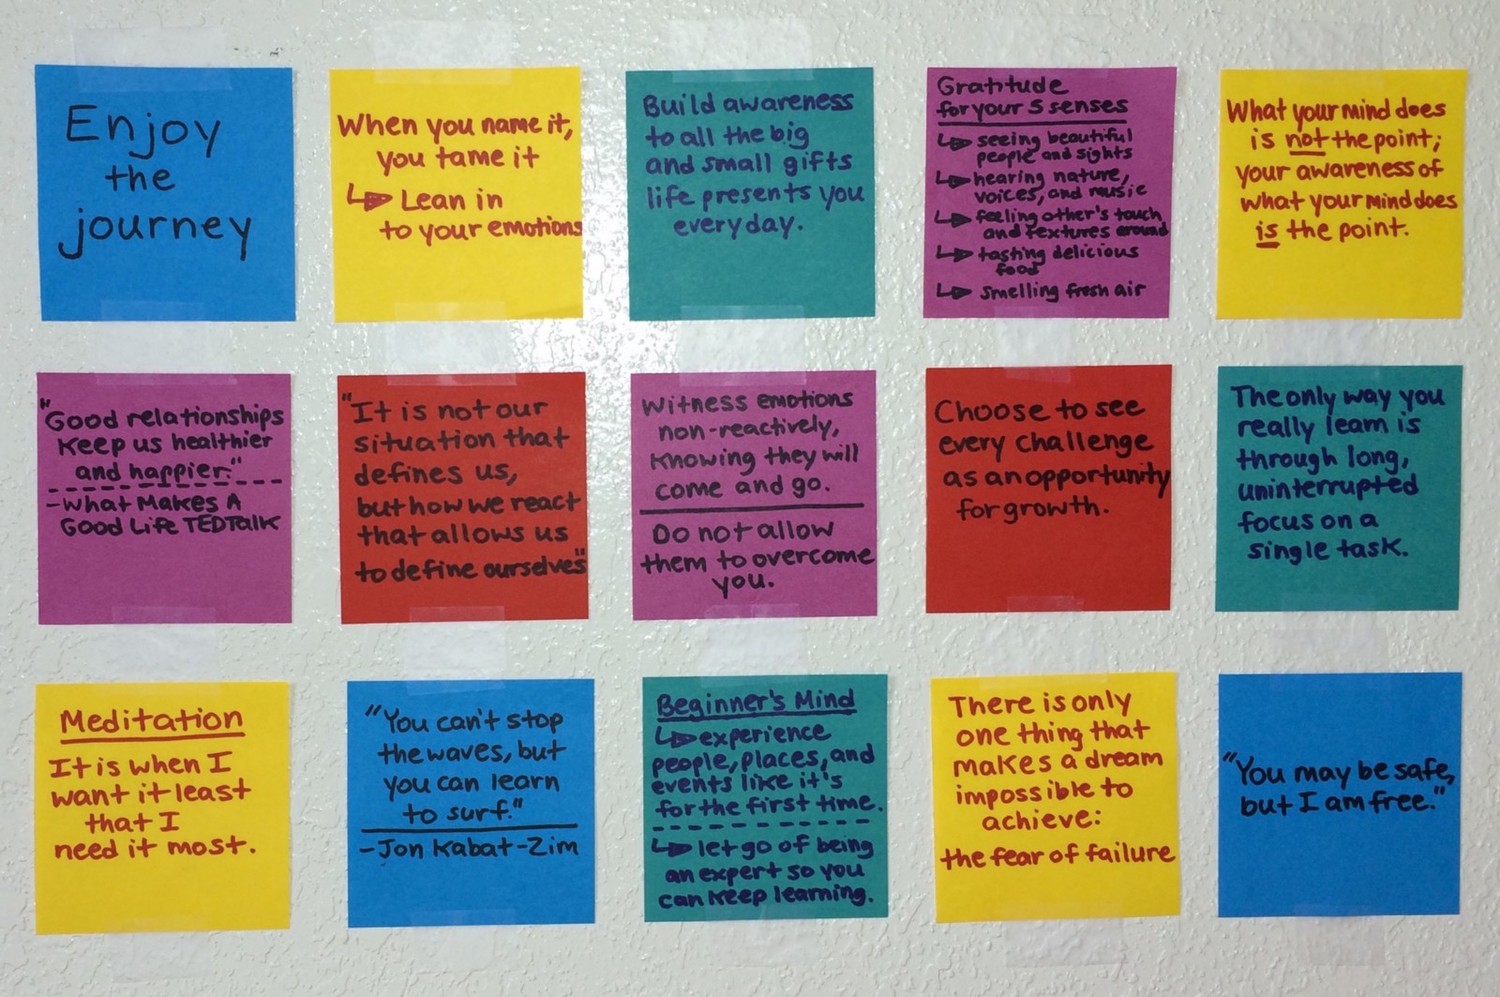 Enjoy
the
journey
When you name it,
you tame it
↳ Lean in
to your emotions
Build awareness
to all the big
and small gifts
life presents you
everyday.
Gratitude
for your 5 senses
↳ seeing beautiful
people and sights
↳ hearing nature,
voices, and music
↳ feeling other's touch
and textures around
↳ tasting delicious
food
↳ smelling fresh air
What your mind does
is not the point;
your awareness of
what your mind does
is the point.
"Good relationships
keep us healthier
and happier."
-What Makes A
Good Life TEDTalk
"It is not our
situation that
defines us,
but how we react
that allows us
to define ourselves"
Witness emotions
non-reactively,
knowing they will
come and go.
Do not allow
them to overcome
you.
Choose to see
every challenge
as an opportunity
for growth.
The only way you
really learn is
through long,
uninterrupted
focus on a
single task.
Meditation
It is when I
want it least
that I
need it most.
"You can't stop
the waves, but
you can learn
to surf."
-Jon Kabat-Zim
Beginner's Mind
↳ experience
people, places, and
events like it's
for the first time.
↳ let go of being
an expert so you
can keep learning.
There is only
one thing that
makes a dream
impossible to
achieve:
the fear of failure
"You may be safe,
but I am free."